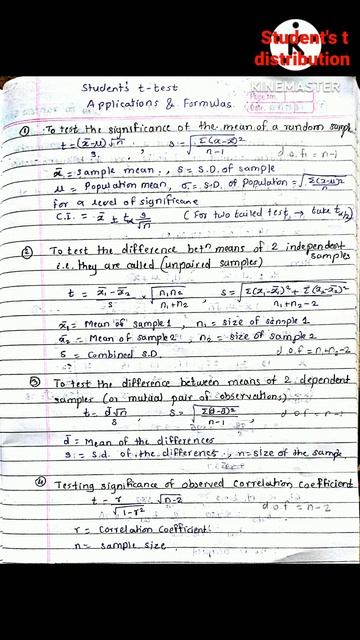 Student's t
distribution
KINEMASTER
Student's t-test
Applications & Formulas.
① To test the significance of the mean of a random sample
t = (x̄-μ)√n / s , s = √(Σ(x-x̄)² / n-1) d.o.f = n-1
x̄ = sample mean, s = S.D. of sample
μ = Population mean, σ = S.D. of Population = √(Σ(x-μ)² / n)
for a level of significane
C.I. = x̄ ± tα s/√n (for two tailed test, → take tα/2)
② To test the difference betn means of 2 independent samples
i.e. they are called (unpaired samples)
t = x̄₁ - x̄₂ / s × √(n₁n₂ / n₁+n₂) , s = √(Σ(x₁-x̄₁)² + Σ(x₂-x̄₂)² / n₁+n₂-2)
x̄₁ = Mean of sample 1, n₁ = size of sample 1
x̄₂ = Mean of sample 2, n₂ = size of sample 2
s = Combined S.D. d.o.f = n₁+n₂-2
③ To test the difference between means of 2 dependent
samples (or mutual pair of observations)
t = d̄√n / s , s = √(Σ(d-d̄)² / n-1) , d.o.f = n-1
d̄ = Mean of the differences
s = s.d. of the differences, n = size of the sample
④ Testing significance of observed Correlation Coefficient
t = r / √1-r² × √n-2 d.o.f = n-2
r = Correlation Coefficient
n = sample size